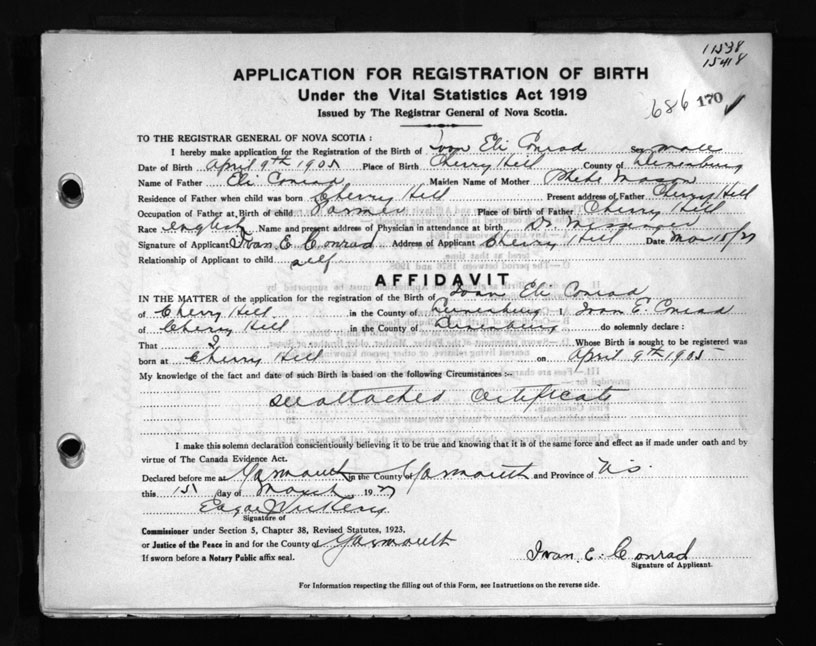 11538
15418
APPLICATION FOR REGISTRATION OF BIRTH
686 170
Under the Vital Statistics Act 1919
Issued by The Registrar General of Nova Scotia.
TO THE REGISTRAR GENERAL OF NOVA SCOTIA :
I hereby make application for the Registration of the Birth of Ivan Eli Conrad Sex male
Date of Birth April 9th 1905 Place of Birth Cherry Hill County of Lunenburg
Name of Father Eli Conrad Maiden Name of Mother Mason
Residence of Father when child was born Cherry Hill Present address of Father Cherry Hill
Occupation of Father at Birth of child Farmer Place of birth of Father Cherry Hill
Race English Name and present address of Physician in attendance at birth Dr.
Signature of Applicant Ivan E. Conrad Address of Applicant Cherry Hill Date Mar 15/27
Relationship of Applicant to child self
AFFIDAVIT
IN THE MATTER of the application for the registration of the Birth of Ivan Eli Conrad
of Cherry Hill in the County of Lunenburg I Ivan E Conrad
of Cherry Hill in the County of Lunenburg do solemnly declare :
That I Whose Birth is sought to be registered was
born at Cherry Hill on April 9th 1905
My knowledge of the fact and date of such Birth is based on the following Circumstances :-
See attached Certificate
I make this solemn declaration conscientiously believing it to be true and knowing that it is of the same force and effect as if made under oath and by
virtue of The Canada Evidence Act.
Declared before me at Yarmouth in the County of Yarmouth and Province of N.S.
this 15 day of March 1927
Signature of
Commissioner under Section 5, Chapter 38, Revised Statutes, 1923,
or Justice of the Peace in and for the County of Yarmouth
If sworn before a Notary Public affix seal.
Ivan E. Conrad
Signature of Applicant.
For Information respecting the filling out of this Form, see Instructions on the reverse side.